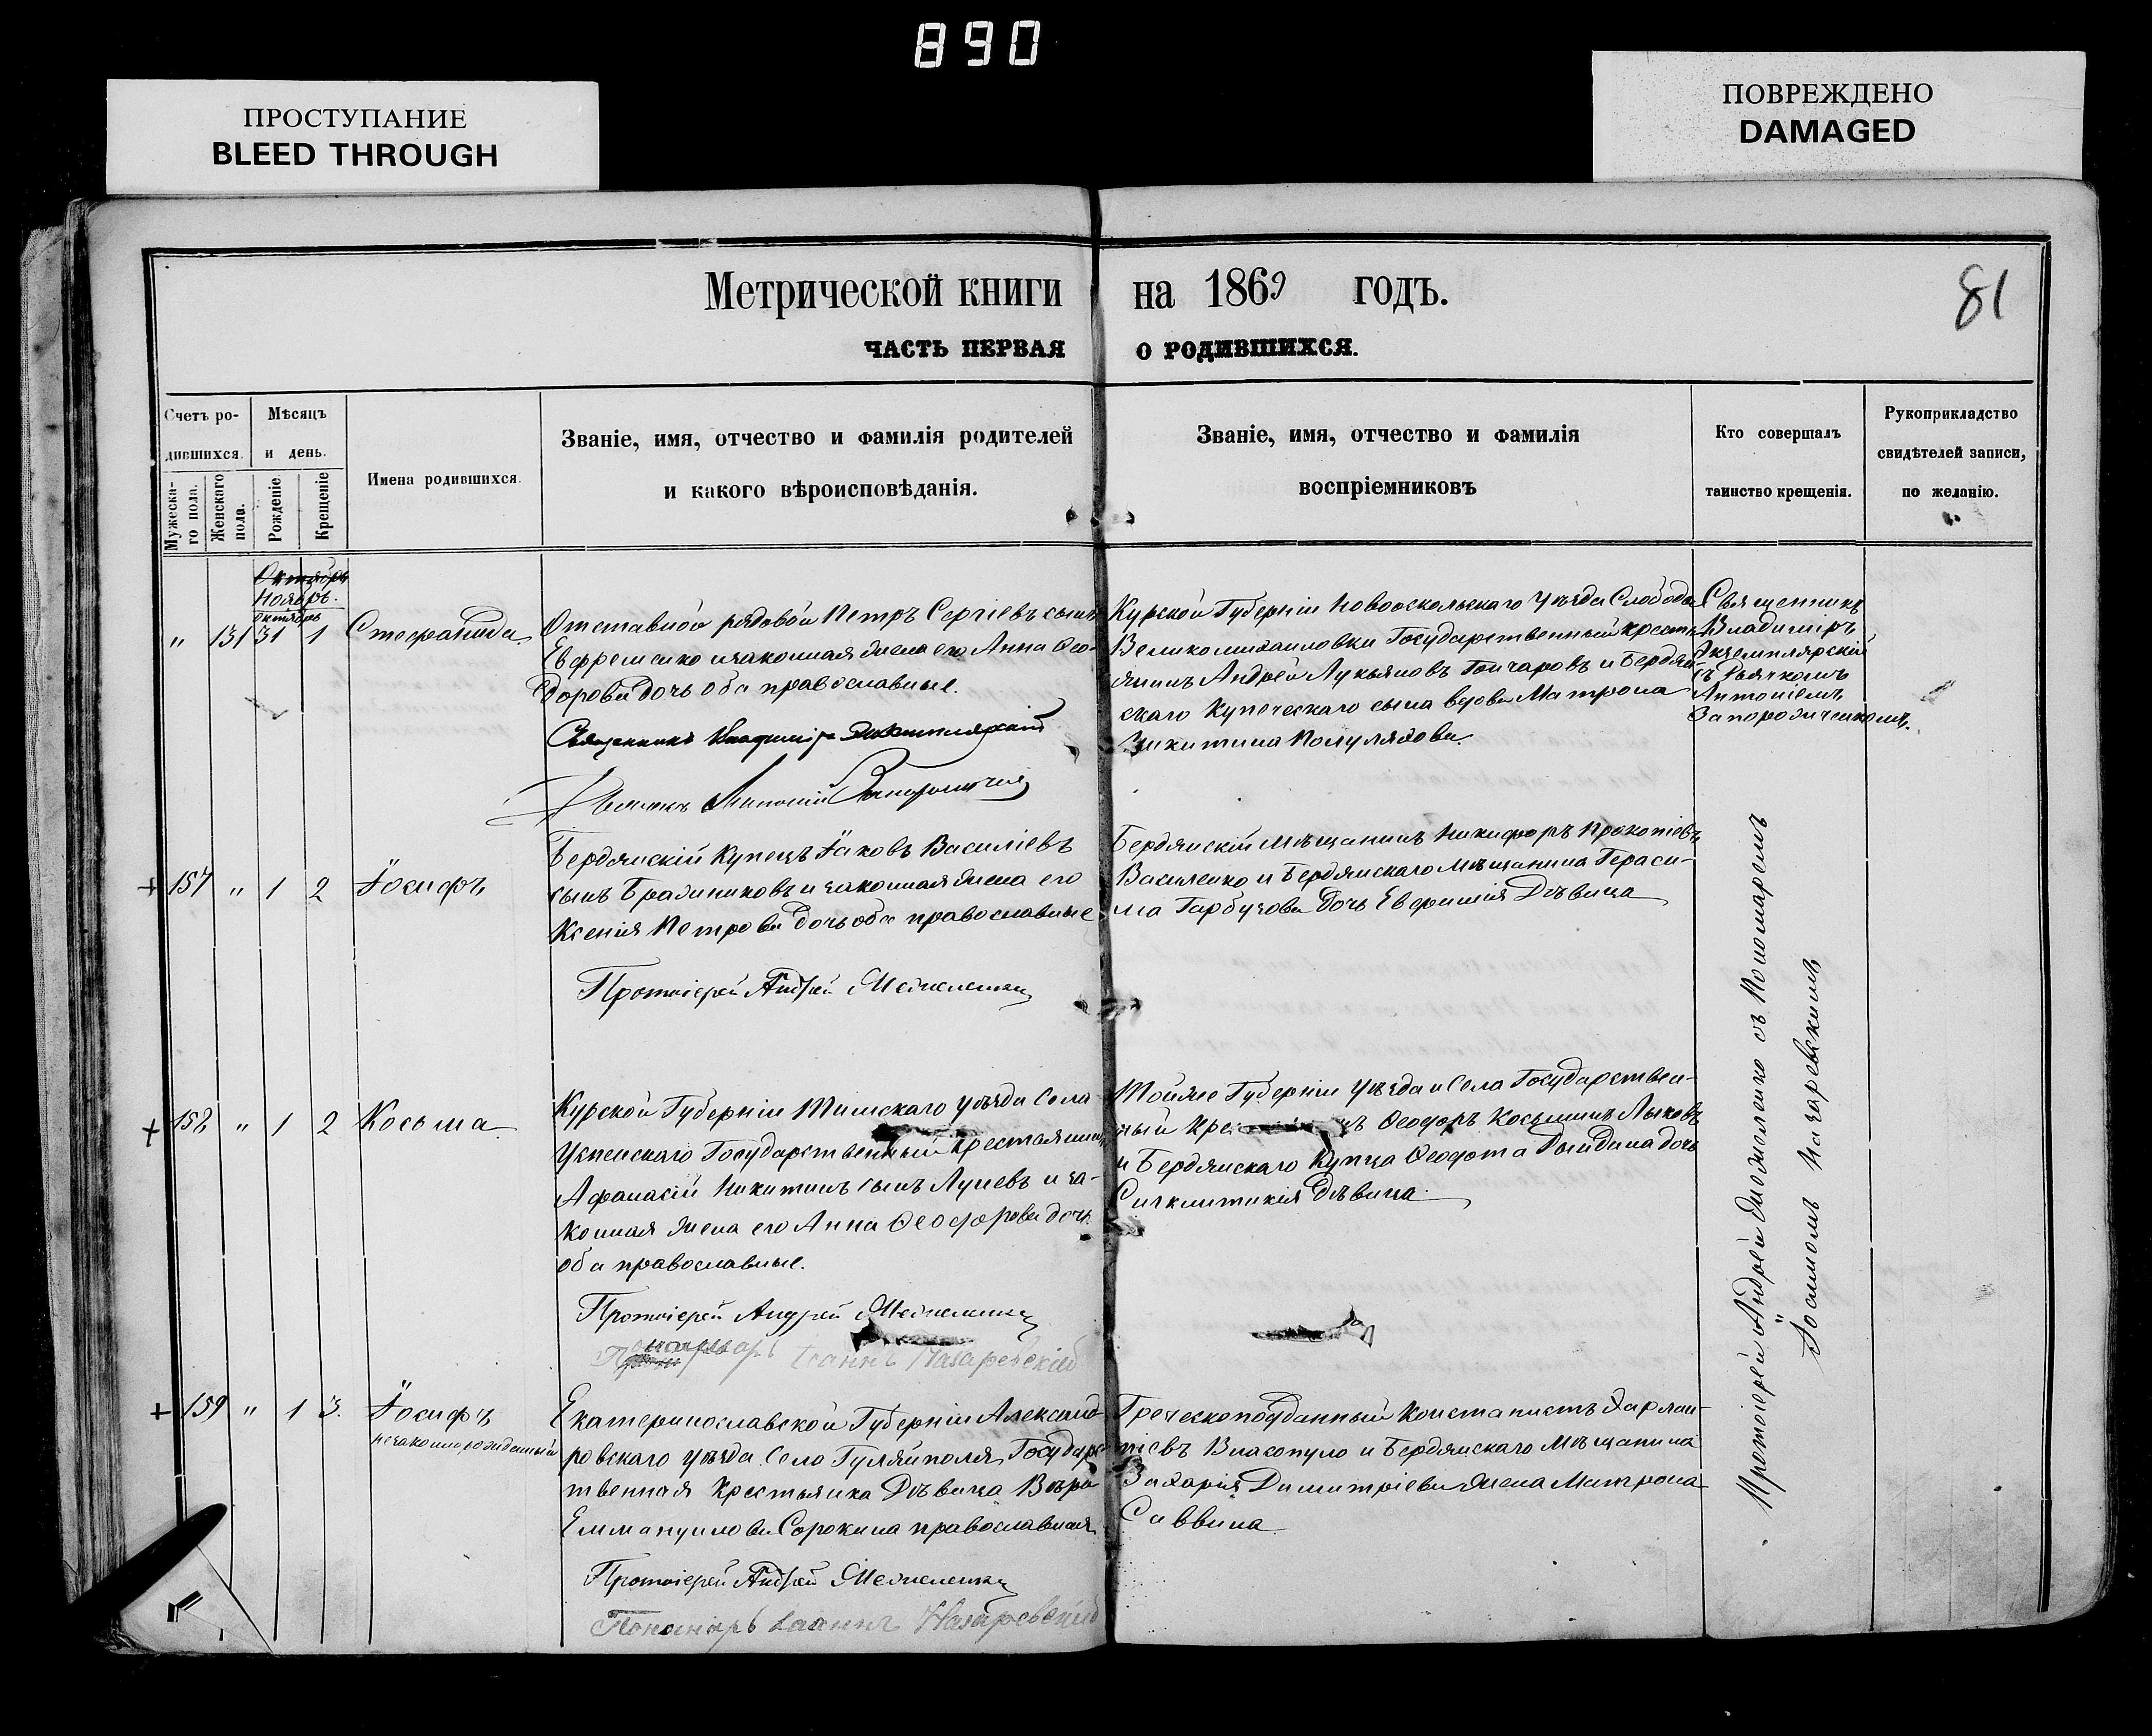 890
ПРОСТУПАНИЕ
BLEED THROUGH
ПОВРЕЖДЕНО
DAMAGED
81
Метрической книги на 1869 годъ.
ЧАСТЬ ПЕРВАЯ О РОДИВШИХСЯ.
Счетъ ро-
дившихся.
Мужеска-
го пола.
Женскаго
пола.
Мѣсяцъ
и день.
Рожденіе
Крещеніе
Имена родившихся.
Званіе, имя, отчество и фамилія родителей
и какого вѣроисповѣданія.
Званіе, имя, отчество и фамилія
воспріемниковъ
Кто совершалъ
таинство крещенія.
Рукоприкладство
свидѣтелей записи,
по желанію.
Октябрь
Ноябрь.
октябрь
„ 131 31 1 Стефанида
Отставной рядовой Петръ Сергіевъ сынъ
Евфременко и законная жена его Анна Ѳео-
дорова дочь оба православные.
Священникъ Владиміръ Экземплярскій
Антоній
Курской Губерніи Новооскольскаго Уѣзда Слободы
Великомихаиловки Государственный крестья-
нинъ Андрей Лукьяновъ Гончаровъ и Бердян-
скаго Купеческаго сына вдова Матрона
Никитина
Священникъ
Владиміръ
Экземплярскій
съ Дьячкомъ
Антоніемъ
Запорожченкомъ.
+ 157 „ 1 2 Іосифъ
Бердянскій Купецъ Іаковъ Василіевъ
сынъ Бражниковъ и законная жена его
Ксенія Петрова дочь оба православные
Протоіерей Андрей
Бердянскій мѣщанинъ Никифоръ Прокопіевъ
Василенко и Бердянскаго мѣщанина Гераси-
ма Гарбузова дочь Евфимія Дѣвица
+ 158 „ 1 2 Косьма
Курской Губерніи Тимскаго уѣзда Села
Успенскаго Государственный крестьянинъ
Афанасій Никитинъ сынъ Луневъ и за-
конная жена его Анна Ѳеодорова дочь
оба православные.
Протоіерей Андрей
Пономарь Іоаннъ Назаревскій
Тойже Губерніи Уѣзда и Села Государствен-
ный Ѳеодоръ Косьминъ Лыковъ
и Бердянскаго Купца Ѳеодота дочь
Синклитикія Дѣвица
+ 159 „ 1 3. Іосифъ
незаконнорожденный
Екатеринославской Губерніи Александ-
ровскаго уѣзда Село Гуляйполя Государс-
твенная Крестьянка Дѣвица Вѣра
Еммануилова Сорокина православная
Протоіерей Андрей
Пономарь Іоаннъ Назаревскій
Греческоподданный Константинъ Харлам-
піевъ Власопуло и Бердянскаго Мѣщанина
Захарія Димитріева жена Матрона
Саввина
Протоіерей Андрей съ Пономаремъ
Іоанномъ Назаревскимъ